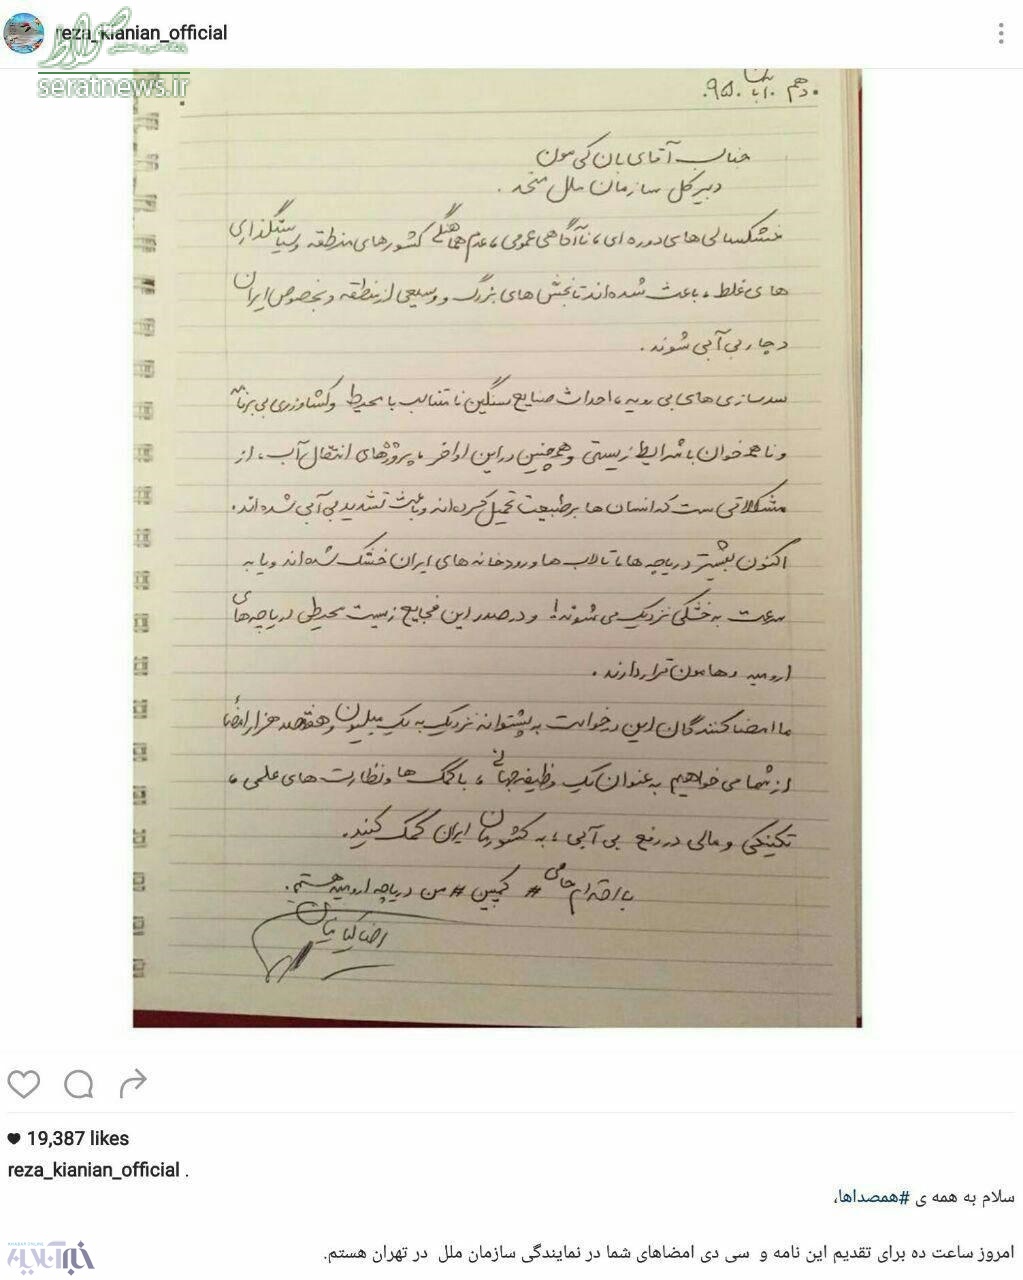 reza_kianian_official
seratnews.ir
دهم آبان ۹۵
جناب آقای بان کی مون
دبیر کل سازمان ملل متحد.
خشکسالی های دوره ای، ناآگاهی عمومی، عدم هماهنگی کشورهای منطقه و سیاستگذاری
های غلط، باعث شده اند تا بخش های بزرگ و وسیعی از منطقه و بخصوص ایران
دچار بی آبی شوند.
سدسازی های بی رویه، احداث صنایع سنگین نامتناسب با محیط و کشاورزی بی برنامه
و ناهمخوان با شرایط زیستی و همچنین در این اواخر، پروژه های انتقال آب، از
مشکلاتی ست که انسان ها بر طبیعت تحمیل کرده اند و باعث تشدید بی آبی شده اند.
اکنون بیشتر دریاچه ها، تالاب ها و رودخانه های ایران خشک شده اند و یا به
سرعت به خشکی نزدیک می شوند! و در صدر این فجایع زیست محیطی دریاچه های
ارومیه و هامون قرار دارند.
ما امضا کنندگان این درخواست به پشتوانه نزدیک به یک میلیون و هفتصد هزار امضا
از شما می خواهیم به عنوان یک وظیفه جهانی، با کمک ها و نظارت های علمی،
تکنیکی و مالی در رفع بی آبی، به کشورمان ایران کمک کنید.
با احترام حامی # کمپین # من دریاچه ارومیه هستم.
رضا کیانیان
19,387 likes
reza_kianian_official .
سلام به همه ی #همصداها،
امروز ساعت ده برای تقدیم این نامه و سی دی امضاهای شما در نمایندگی سازمان ملل در تهران هستم.
خبرآنلاین